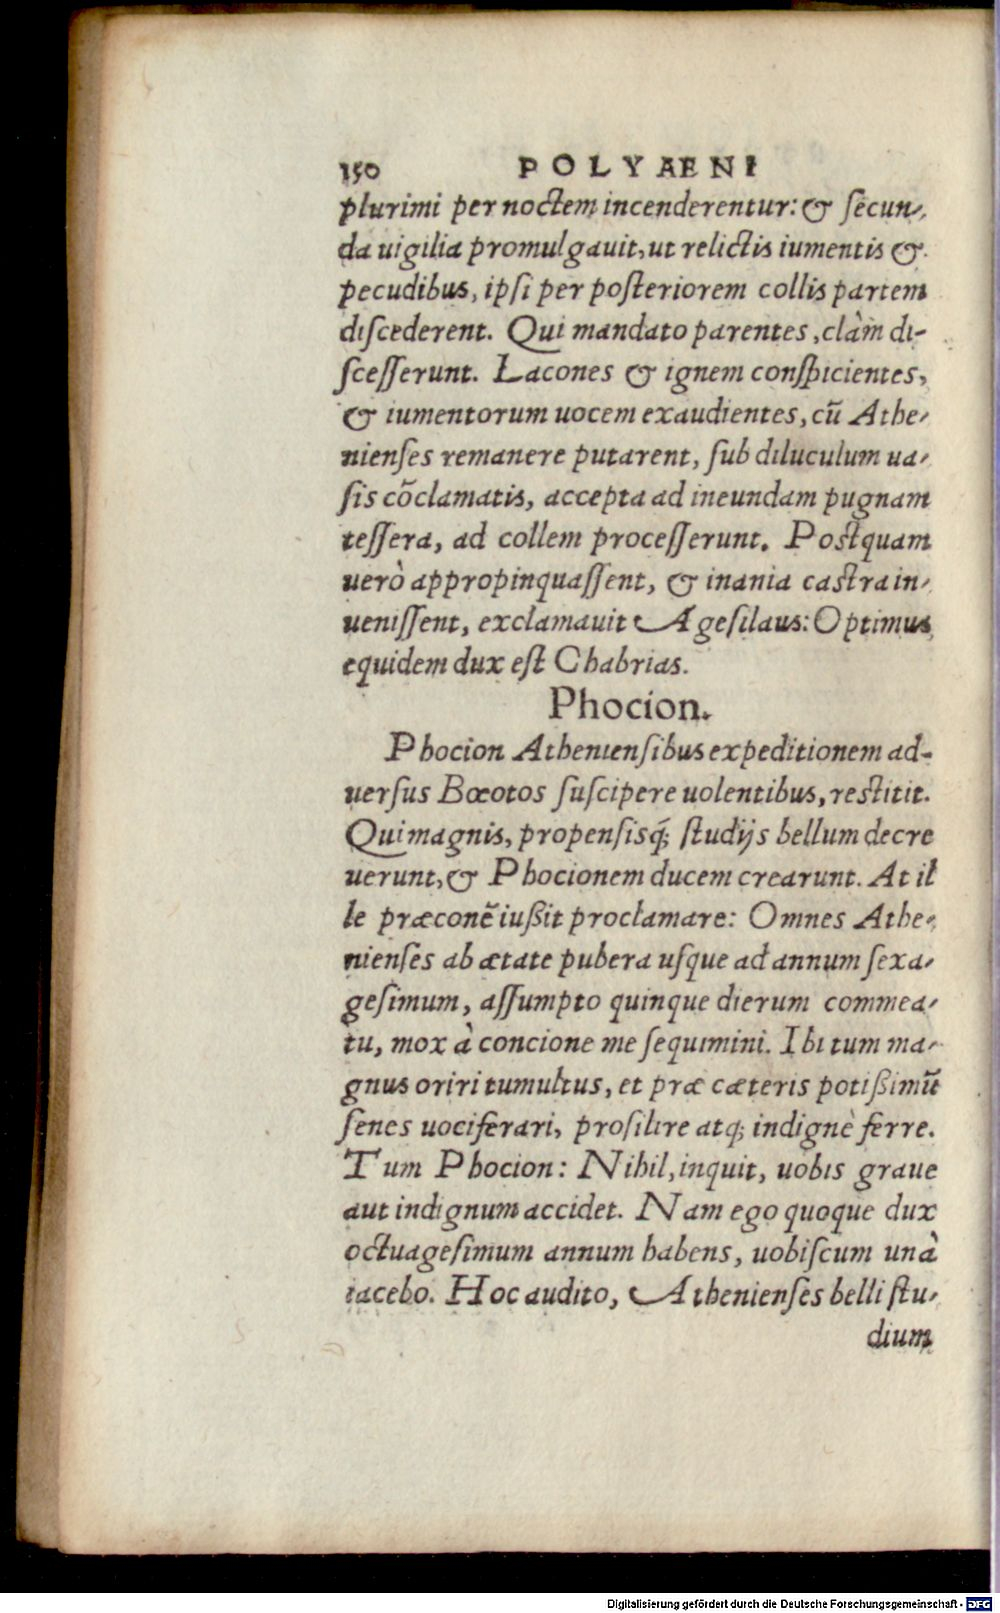 150 POLYAENI
plurimi per noctem incenderentur: & secun-
da uigilia promulgauit, ut relictis iumentis &
pecudibus, ipsi per posteriorem collis partem
discederent. Qui mandato parentes, clàm di-
scesserunt. Lacones & ignem conspicientes,
& iumentorum uocem exaudientes, cũ Athe-
nienses remanere putarent, sub diluculum ua-
sis cõclamatis, accepta ad ineundam pugnam
tessera, ad collem processerunt. Postquam
uerò appropinquassent, & inania castra in-
uenissent, exclamauit Agesilaus: Optimus
equidem dux est Chabrias.
Phocion.
Phocion Atheniensibus expeditionem ad-
uersus Bœotos suscipere uolentibus, restitit.
Qui magnis, propensisq́; studijs bellum decre
uerunt, & Phocionem ducem crearunt. At il
le præconẽ iußit proclamare: Omnes Athe-
nienses ab ætate pubera usque ad annum sexa-
gesimum, assumpto quinque dierum commea-
tu, mox à concione me sequimini. Ibi tum ma-
gnus oriri tumultus, et præ cæteris potißimũ
senes uociferari, prosilire atq; indignè ferre.
Tum Phocion: Nihil, inquit, uobis graue
aut indignum accidet. Nam ego quoque dux
octuagesimum annum habens, uobiscum unà
iacebo. Hoc audito, Athenienses belli stu-
dium
Digitalisierung gefördert durch die Deutsche Forschungsgemeinschaft - DFG